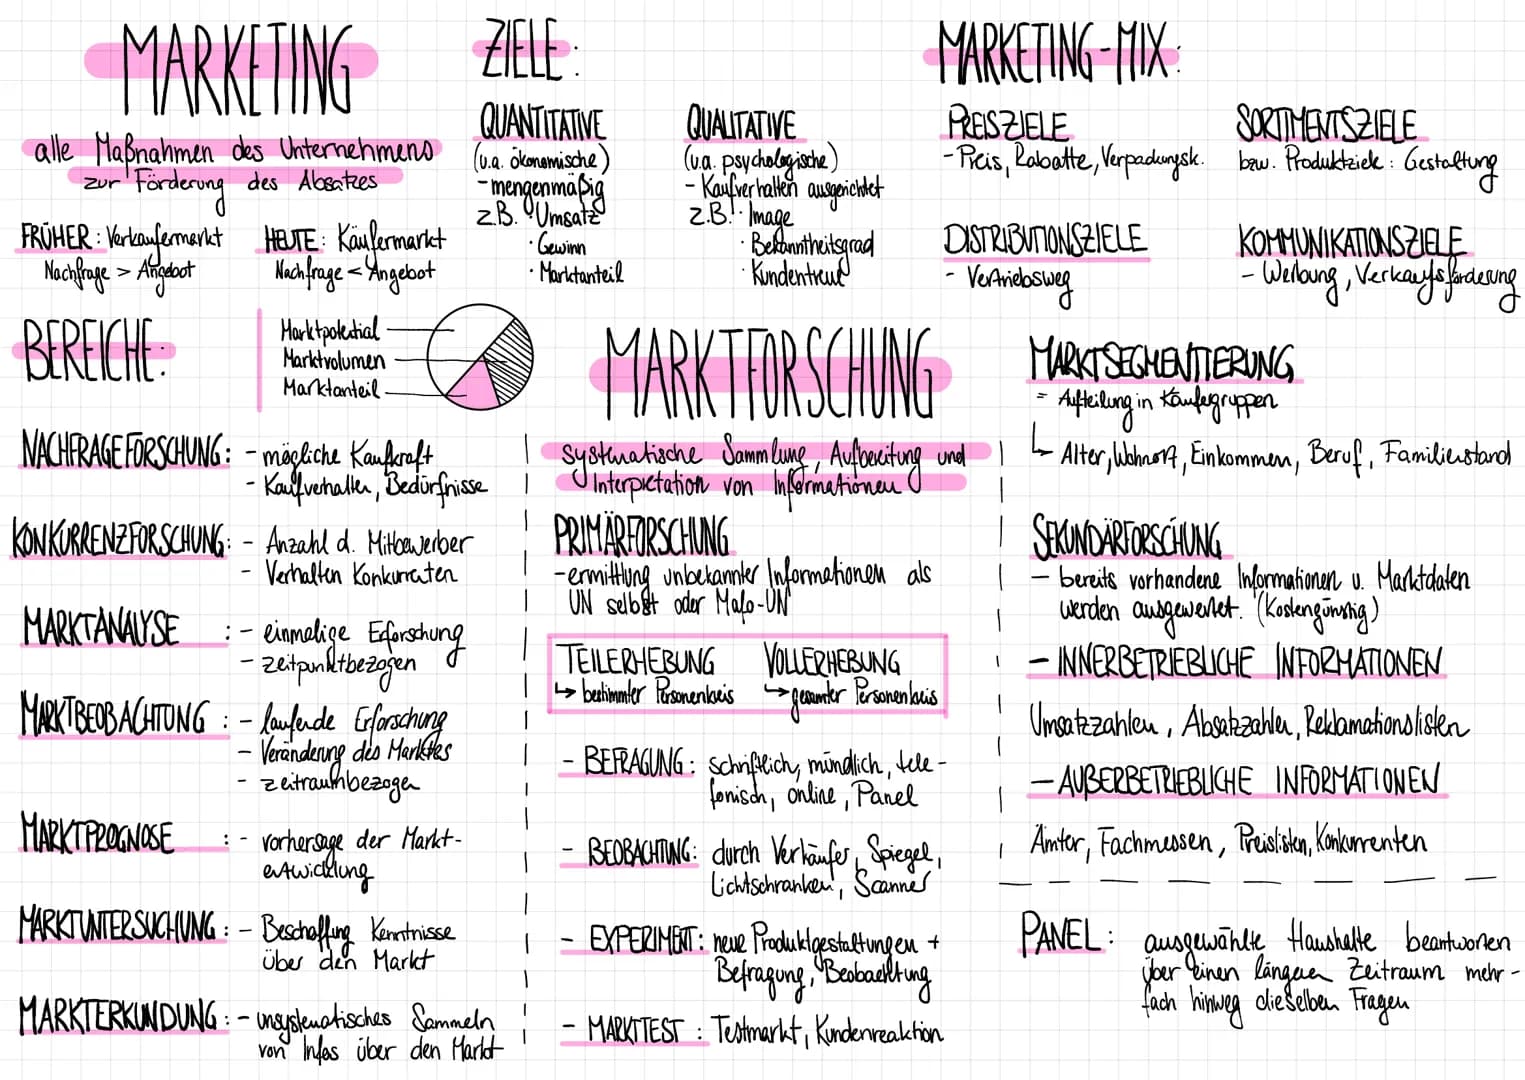 MARKETING
alle Maßnahmen des Unternehmens
zur Förderung des Absatzes
FRÜHER: Verkäufermarkt
Nachfrage > Angebot
HEUTE: Käufermarkt
Nachfrage < Angebot
ZIELE:
QUANTITATIVE
(u.a. ökonomische)
- mengenmäßig
z.B. · Umsatz
· Gewinn
· Marktanteil
QUALITATIVE
(u.a. psychologische)
- Kaufverhalten ausgerichtet
z.B. · Image
· Bekanntheitsgrad
· Kundentreue
MARKETING-MIX:
PREISZIELE
- Preis, Rabatte, Verpackungsk.
SORTIMENTSZIELE
bzw. Produktziele: Gestaltung
DISTRIBUTIONSZIELE
- Vertriebsweg
KOMMUNIKATIONSZIELE
- Werbung, Verkaufsförderung
BEREICHE:
Marktpotential
Marktvolumen
Marktanteil
NACHFRAGEFORSCHUNG: - mögliche Kaufkraft
- Kaufverhalten, Bedürfnisse
KONKURRENZFORSCHUNG: - Anzahl d. Mitbewerber
- Verhalten Konkurrenten
MARKTANALYSE : - einmalige Erforschung
- zeitpunktbezogen
MARKTBEOBACHTUNG : - laufende Erforschung
- Veränderung des Marktes
- zeitraumbezogen
MARKTPROGNOSE : - vorhersage der Markt-
entwicklung
MARKTUNTERSUCHUNG : - Beschaffung Kenntnisse
über den Markt
MARKTERKUNDUNG : - unsystematisches Sammeln
von Infos über den Markt
MARKTFORSCHUNG
systematische Sammlung, Aufbereitung und
Interpretation von Informationen
PRIMÄRFORSCHUNG
- ermittlung unbekannter Informationen als
UN selbst oder Mafo-UN
TEILERHEBUNG
↳ bestimmter Personenkreis
VOLLERHEBUNG
↳ gesamter Personenkreis
- BEFRAGUNG: schriftlich, mündlich, tele-
fonisch, online, Panel
- BEOBACHTUNG: durch Verkäufer, Spiegel,
Lichtschranken, Scanner
- EXPERIMENT: neue Produktgestaltungen +
Befragung, Beobachtung
- MARKTTEST : Testmarkt, Kundenreaktion
MARKTSEGMENTIERUNG
= Aufteilung in Käufergruppen
↳ Alter, Wohnort, Einkommen, Beruf, Familienstand
SEKUNDÄRFORSCHUNG
- bereits vorhandene Informationen u. Marktdaten
werden ausgewertet. (Kostengünstig)
- INNERBETRIEBLICHE INFORMATIONEN
Umsatzzahlen, Absatzzahlen, Reklamationslisten
- AUßERBETRIEBLICHE INFORMATIONEN
Ämter, Fachmessen, Preislisten, Konkurrenten
PANEL: ausgewählte Haushalte beantworten
über einen längeren Zeitraum mehr-
fach hinweg dieselben Fragen